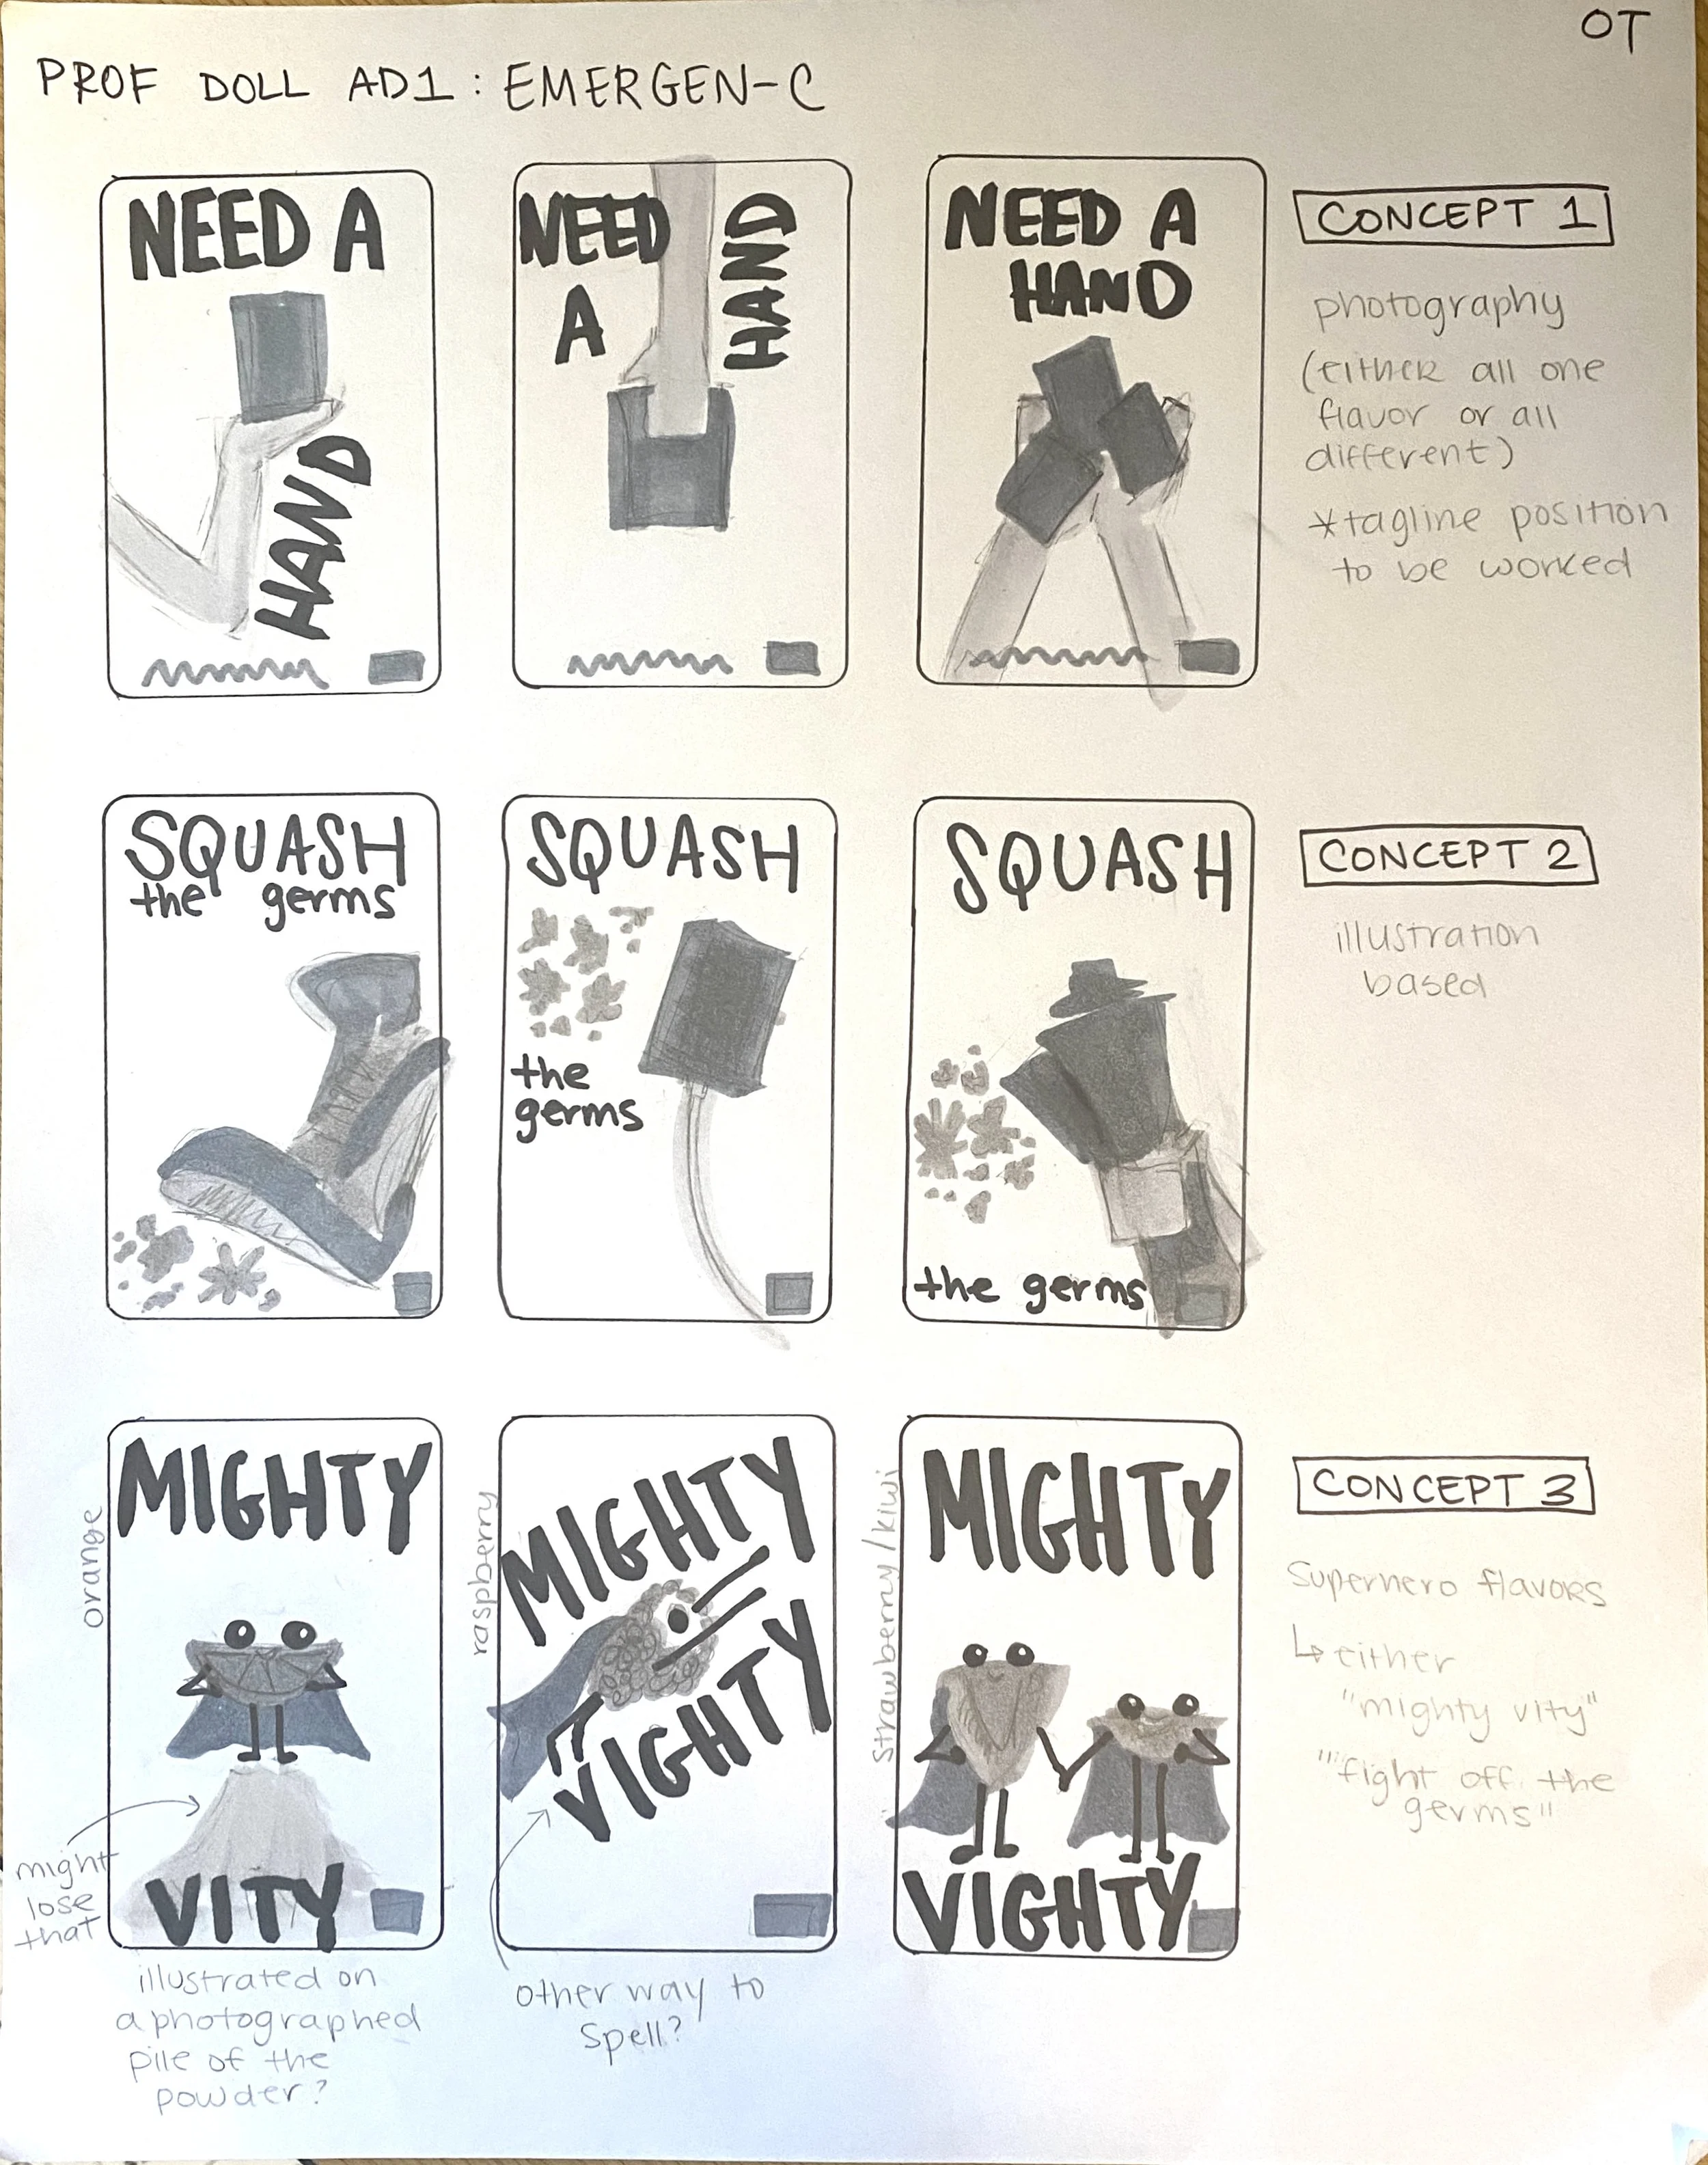 OT
PROF DOLL AD1: EMERGEN-C
NEED A
HAND
NEED
A
HAND
NEED A
HAND
CONCEPT 1
photography
(either all one
flavor or all
different)
*tagline position
to be worked
SQUASH
the germs
SQUASH
the
germs
SQUASH
the germs
CONCEPT 2
illustration
based
orange
MIGHTY
VITY
might
lose
that
illustrated on
a photographed
pile of the
powder?
raspberry
MIGHTY
VIGHTY
other way to
spell?
strawberry/kiwi
MIGHTY
VIGHTY
CONCEPT 3
Superhero flavors
↳ either
"mighty vity"
"fight off the
germs"